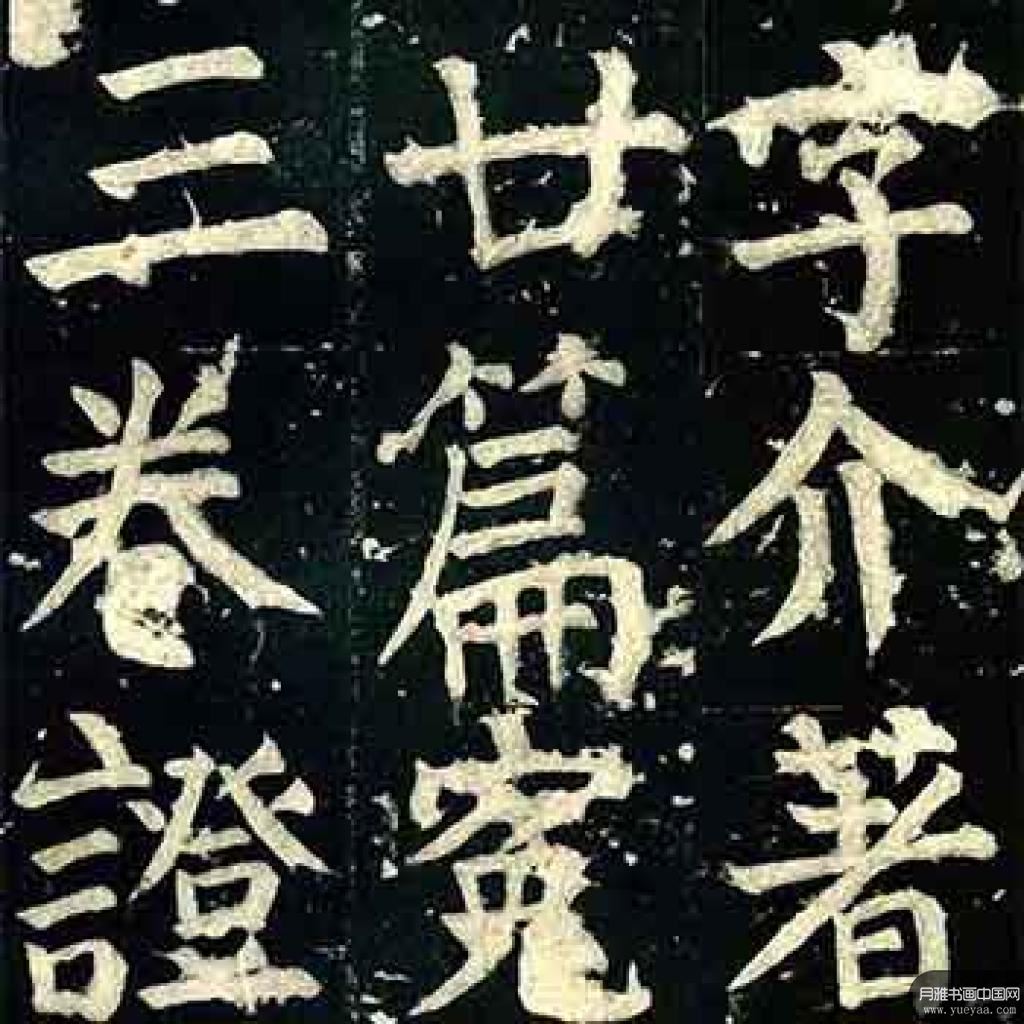 字介著
廿篇寃
三卷證
月雅书画中国网
www.yueyaa.com